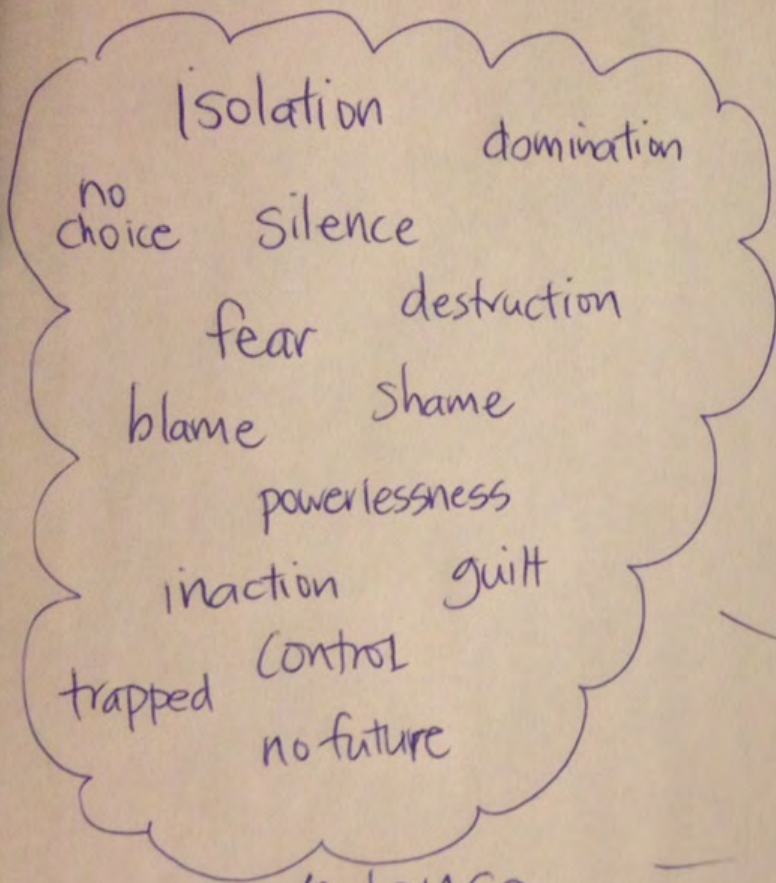 isolation
domination
no
choice
silence
destruction
fear
shame
blame
powerlessness
inaction
guilt
control
trapped
no future